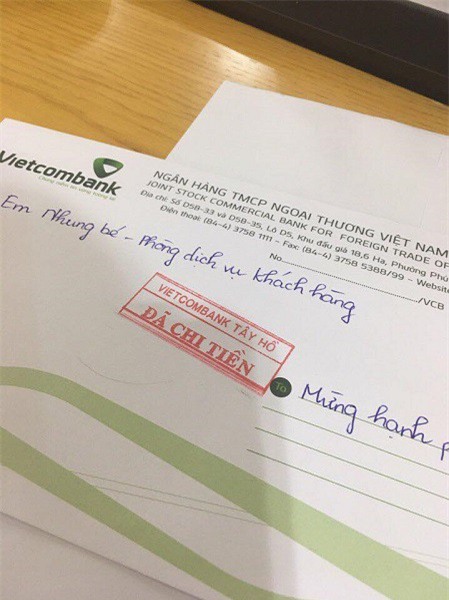 Vietcombank
Chung niềm tin vững tương lai
NGÂN HÀNG TMCP NGOẠI THƯƠNG VIỆT NAM
JOINT STOCK COMMERCIAL BANK FOR FOREIGN TRADE OF
Địa chỉ: Số D5B-33 và D5B-35, Lô D5, Khu đấu giá 18,6 Ha, Phường Phú
Điện thoại: (84-4) 3758 1111 - Fax: (84-4) 3758 5388/99 - Website
No. /VCB
Em Nhung bé - Phòng dịch vụ khách hàng
VIETCOMBANK TÂY HỒ
ĐÃ CHI TIỀN
To
Mừng hạnh